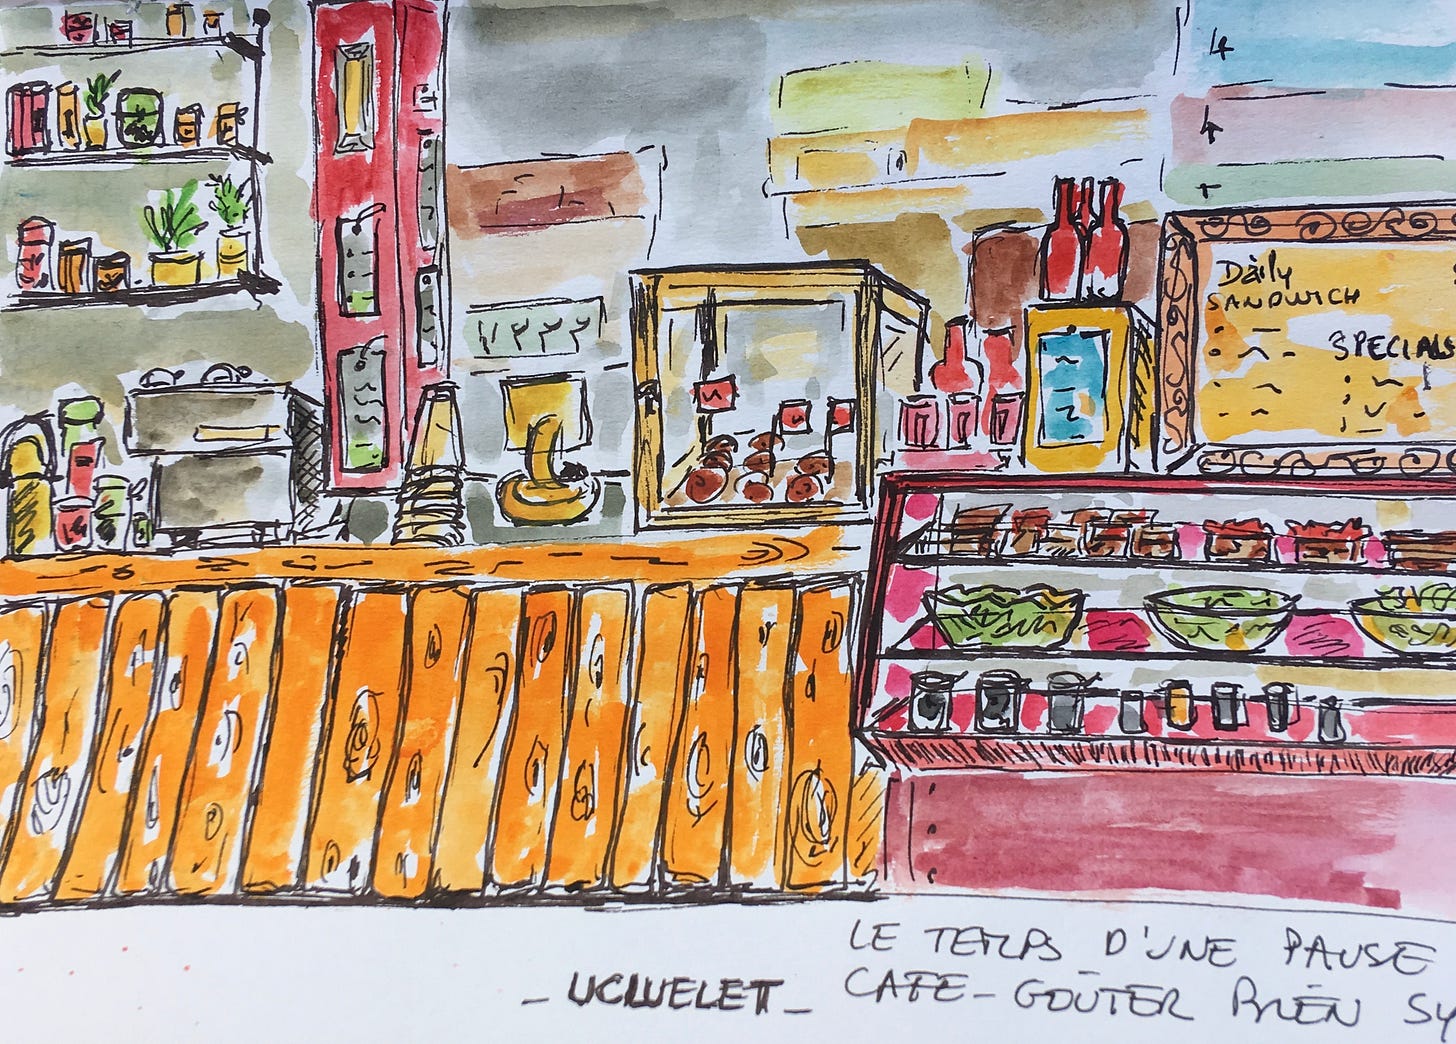 Daily
SANDWICH
SPECIALS
LE TEMPS D'UNE PAUSE
CAFE - GOÛTER BIEN SY
- UCLUELET -